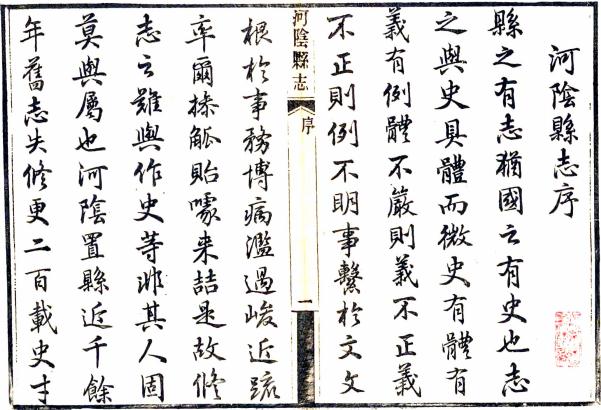 河陰縣志序
縣之有志猶國之有史也志
之與史具體而微史有體有
義有例體不嚴則義不正義
不正則例不明事繫於文文
河陰縣志
序
一
根於事務博病濫過峻近疏
率爾操觚貽嚎来詰是故修
志之難與作史等非其人固
莫與屬也河陰置縣近千餘
年舊志失修更二百載史才